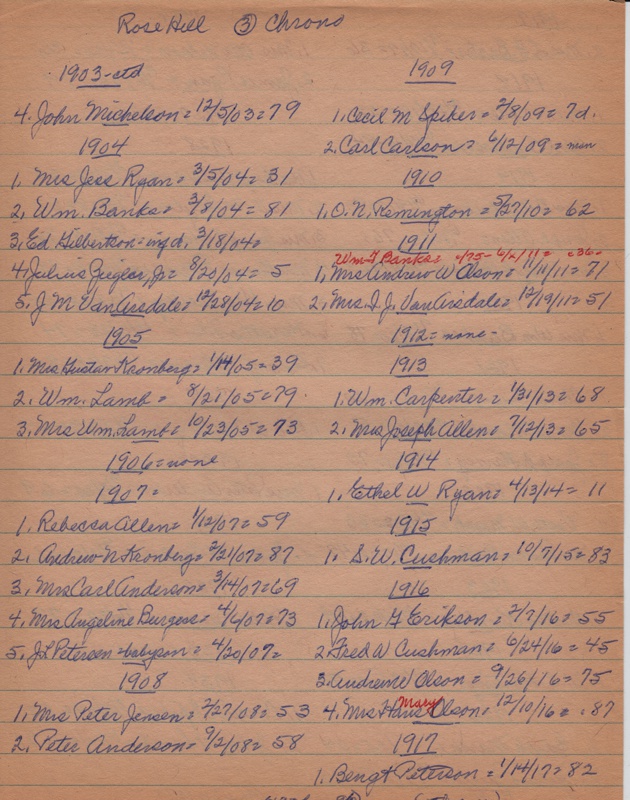 Rose Hill ③ Chrono
1903-ctd
4. John Mickelson = 12/5/03 = 79
1904
1. Mrs Jess Ryan = 3/5/04 = 31
2. Wm. Banks = 3/8/04 = 81
3. Ed Gilbertson = inf d. 3/18/04 =
4. Julius Ziegler, Jr = 8/20/04 = 5
5. J M VanArsdale = 12/28/04 = 10
1905
1. Mrs Gustav Kronberg = 1/14/05 = 39
2. Wm. Lamb = 8/21/05 = 79.
3. Mrs Wm. Lamb = 10/23/05 = 73
1906 = none
1907 =
1. Rebecca Allen = 1/12/07 = 59
2. Andrew N Kronberg = 2/21/07 = 87
3. Mrs Carl Anderson = 3/14/07 = 69
4. Mrs Angeline Burgess = 4/6/07 = 73
5. J L Petersen = babyson = 4/20/07 =
1908
1. Mrs Peter Jensen = 2/27/08 = 53
2. Peter Anderson = 9/2/08 = 58
1909
1. Cecil M Spiker = 2/8/09 = 7d.
2. Carl Carlson = 6/12/09 = man
1910
1. O. N. Remington = 5/27/10 = 62
1911
Wm T Banks = 4/75 - 6/2/11 = c36 -
1. Mrs Andrew W Olson = 11/11/11 = 71
2. Mrs. I. J. VanArsdale = 12/19/11 = 51
1912 = none -
1913
1. Wm. Carpenter = 1/31/13 = 68
2. Mrs Joseph Allen = 7/12/13 = 65
1914
1. Ethel W Ryan = 4/13/14 = 11
1915
1. S. W. Cushman = 10/7/15 = 83
1916
1. John G Erikson = 2/7/16 = 55
2. Fred W Cushman = 6/24/16 = 45
3. Andrew W Olson = 9/26/16 = 75
4. Mrs Hans Mary Olson = 12/10/16 = 87
1917
1. Bengt Peterson = 1/14/17 = 82